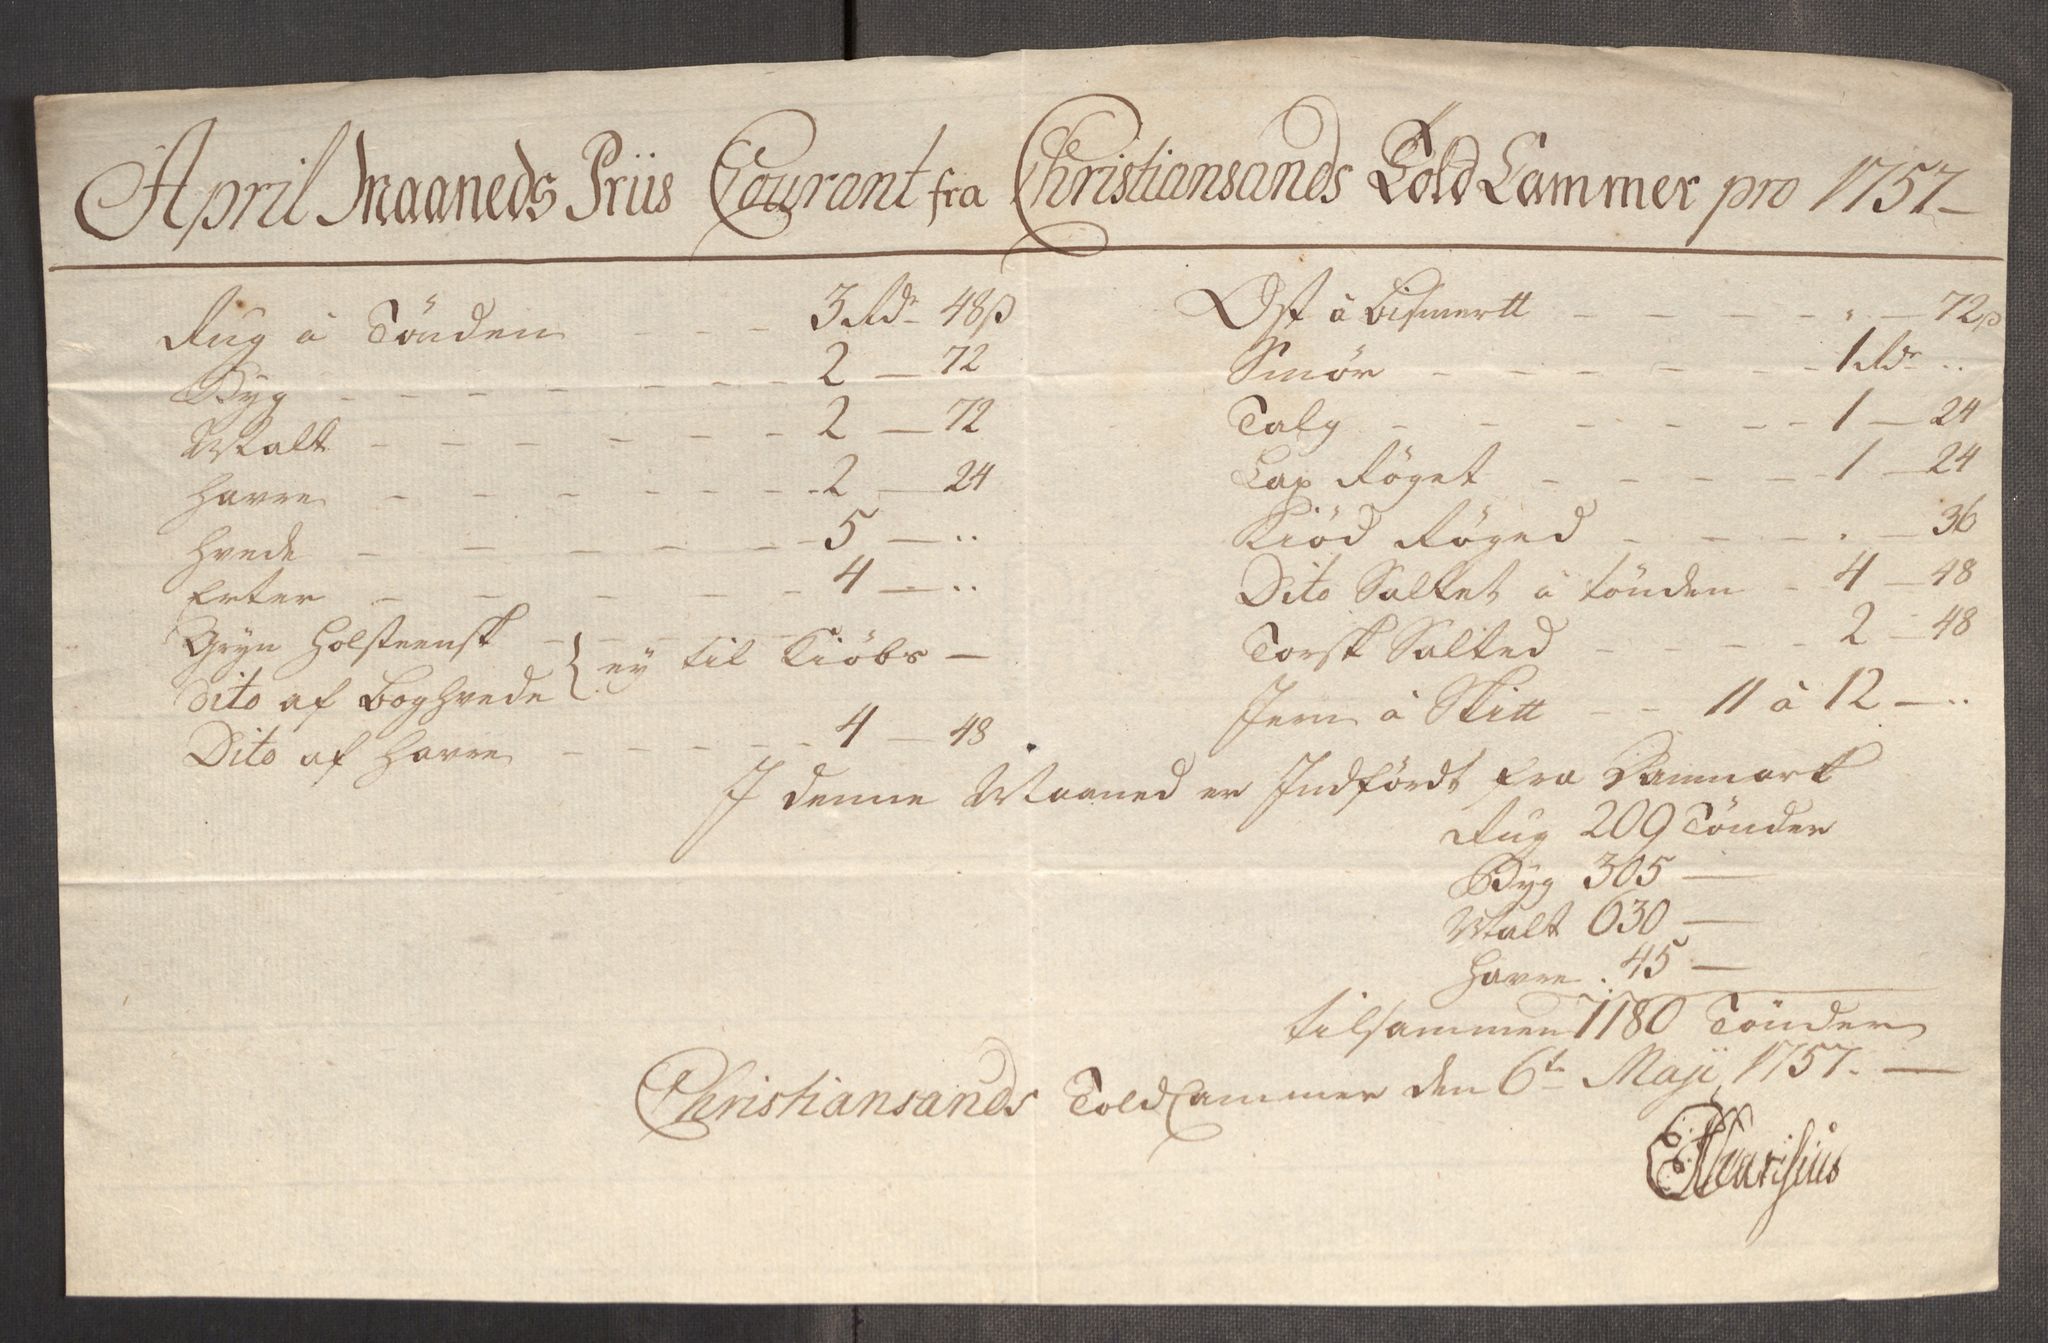 April Maaneds Priis Courant fra Christiansands Told Cammer pro 1757 –
Rug à Tönden - - 3 Rdr 48 ß
Byg - - - - - - - 2 — 72
Malt - - - - - - - 2 — 72
Havre - - - - - - - 2 — 24
Hvede - - - - - - 5 — ..
Erter - - - - - - 4 — ..
Gryn Holsteensk - - - -
Dito af Boghvede } ey til Kiöbs —
Dito af Havre - - - - - 4 — 48
Ost à Bismertt - - - - - . — 72 ß
Smör - - - - - - 1 Rdr ..
Talg - - - - - - 1 — 24
Lax Röget - - - - - 1 — 24
Kiöd Röged - - - . — 36
Dito Saltet à tönden - 4 — 48
Torsk Salted - - - - 2 — 48
Jern à Skitt - - 11 à 12 — ..
I denne Maaned er Indfördt fra Danmark
Rug 209 Tönder
Byg 305 —
Malt 630 —
Havre . 45 —
tilsammen 1180 Tönder
Christiansands Told Cammer den 6te Maji 1757. —